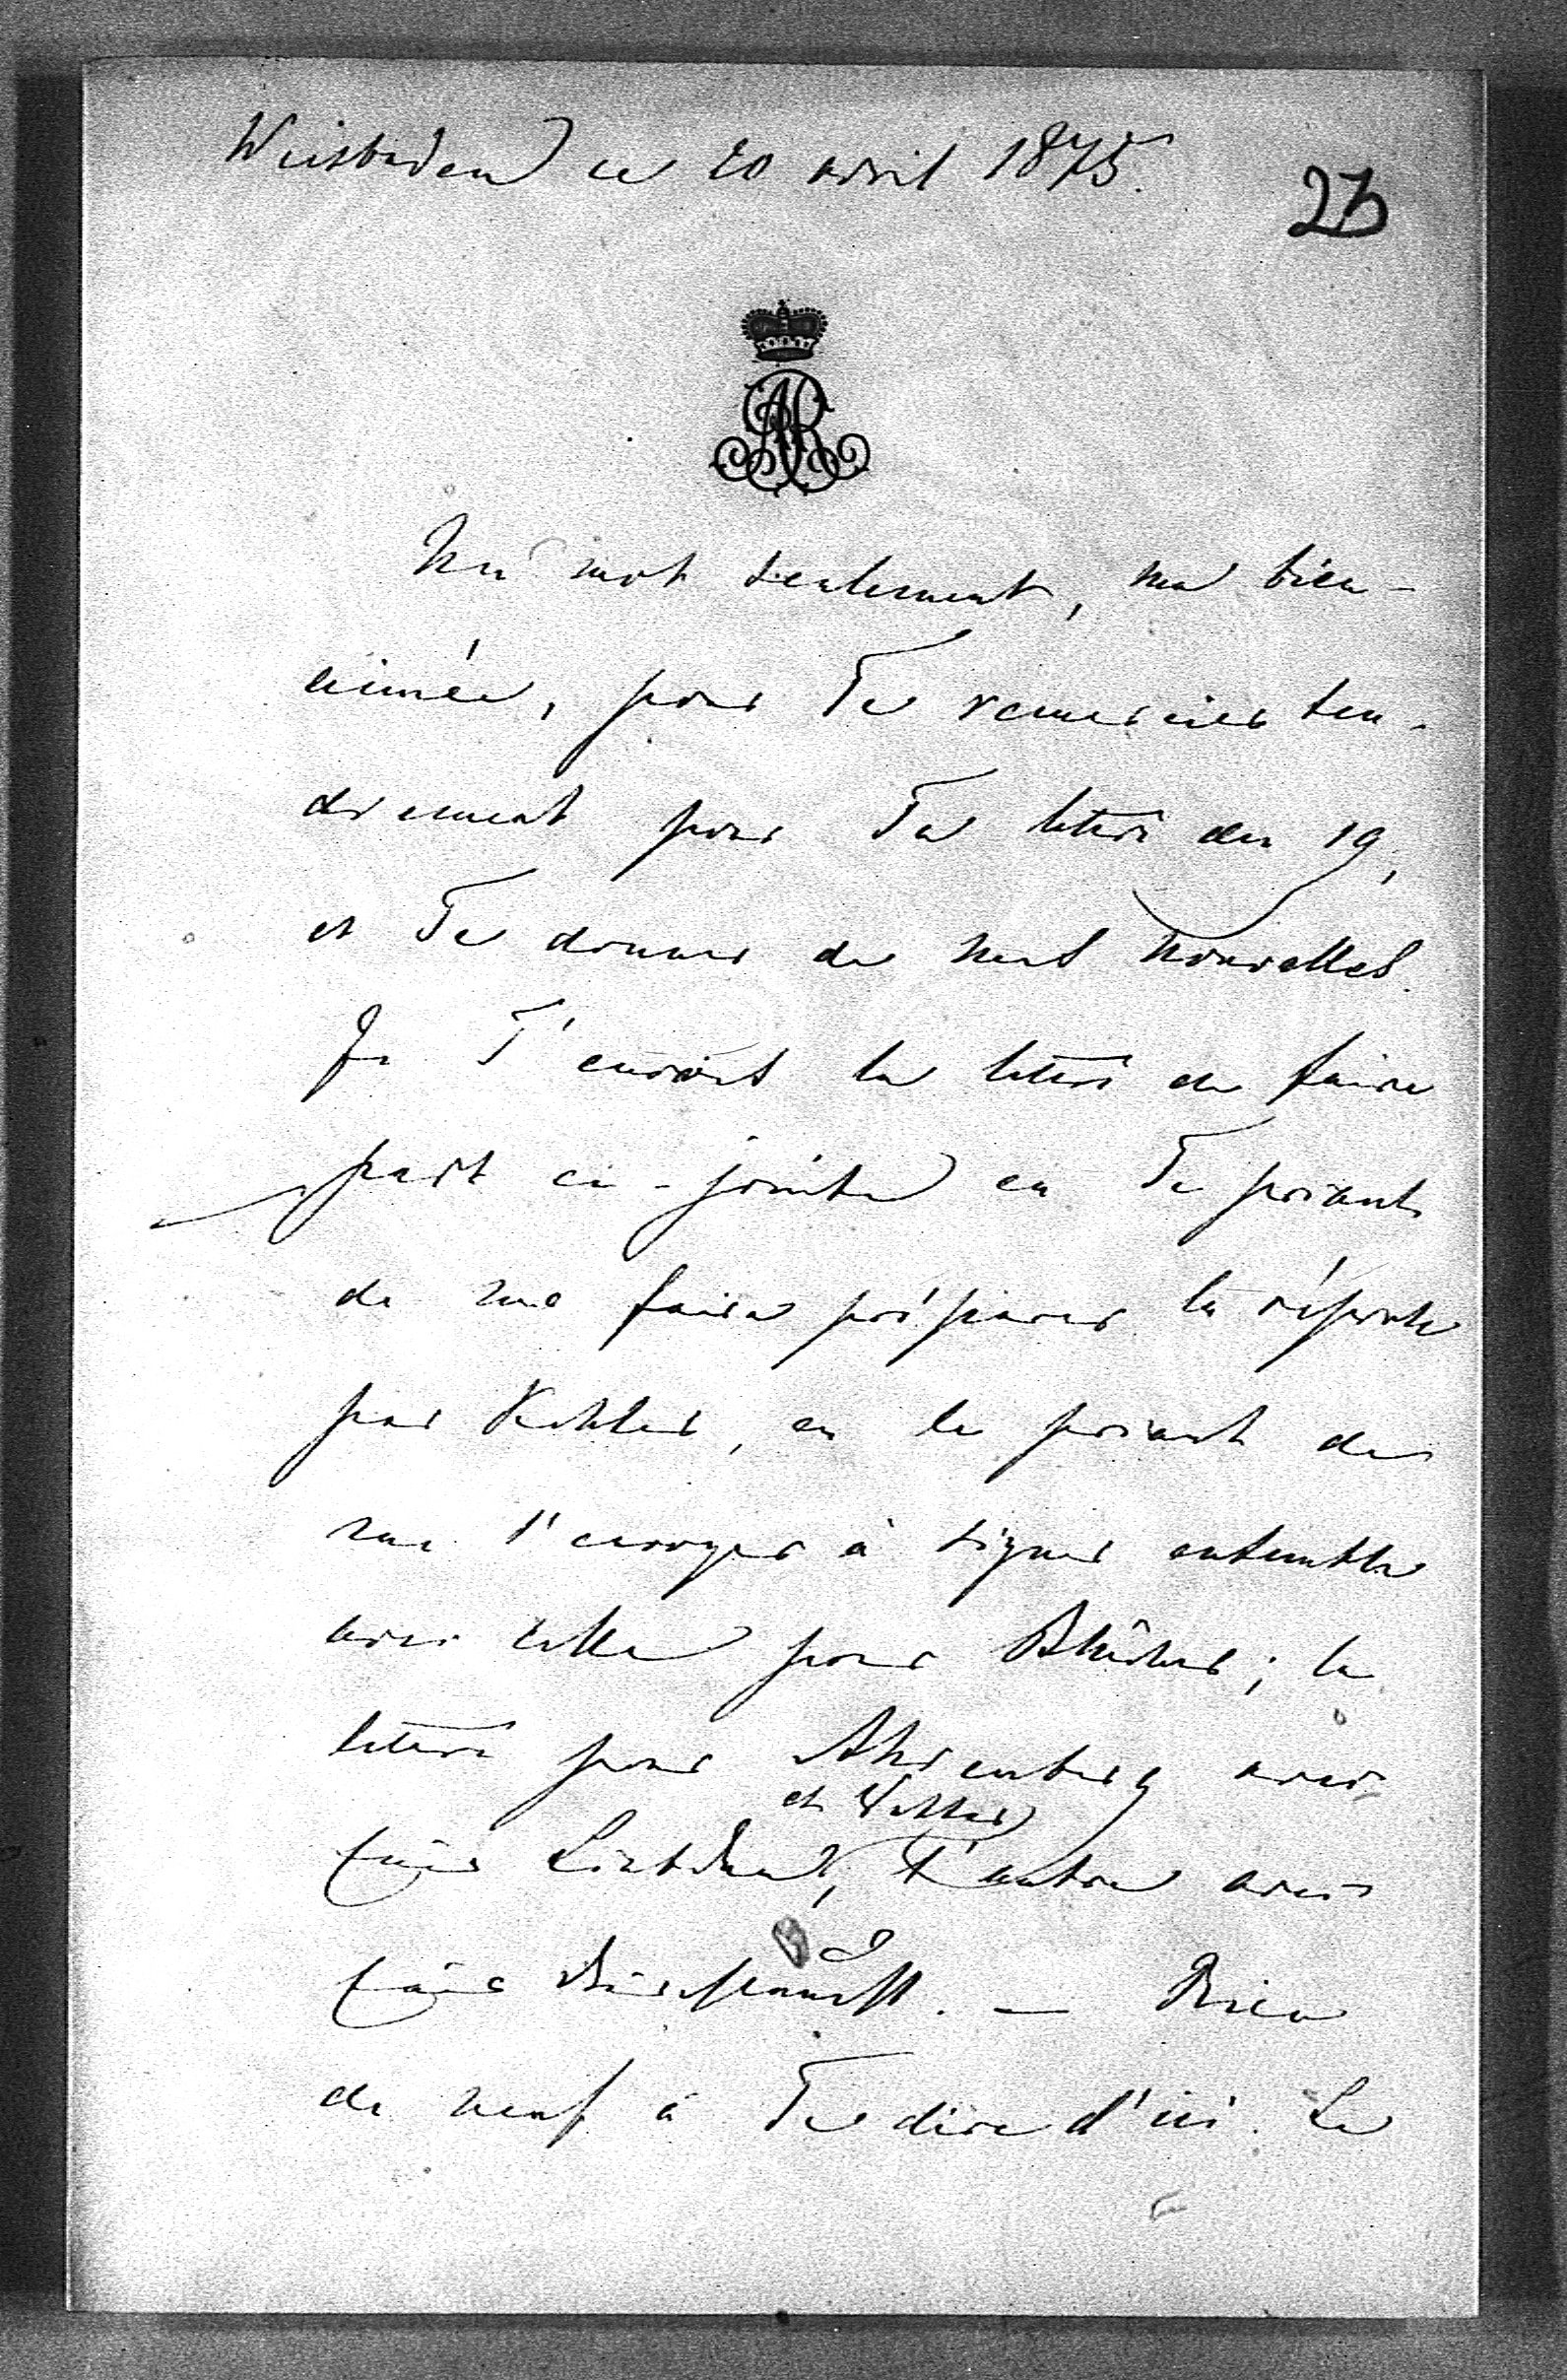 Wiesbaden ce 20 avril 1875.
23
AR
Un mot seulement, ma bien-
aimée, pour Te remercier ten-
drement pour Ta lettre du 19,
et Te donner de mes nouvelles.
Je T'envois la lettre de faire
part ci-jointe en Te priant
de me faire préparer la réponse
par Köhler, en le priant de
me l'envoyer à signer ensemble
avec celle pour Blücher; la
lettre pour Ahrenberg avec
et Vetter
l'autre avec
Rien
de neuf à Te dire d'ici. Le